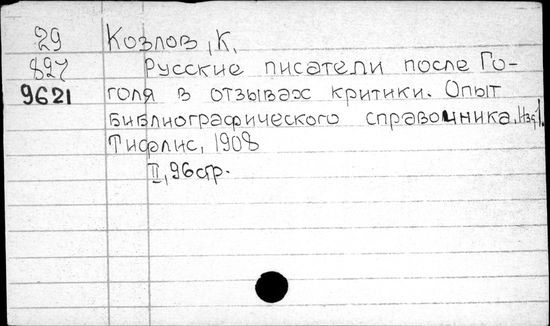 29 Козлов, К.
827 Русские писатели после Го-
9621 голя в отзывах критики. Опыт
библиографического справочника. Изд. 1.
Тифлис, 1908
II, 96 стр.